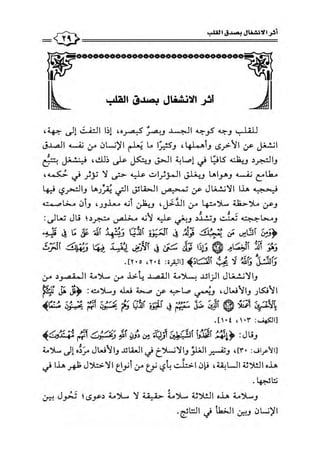 أثر الانشغال بصدق القلب
٢٩
أثر الانشغال بصدق القلب
للقلب وجه كوجه الجسد وبصرٌ كبصره، إذا التفتَ إلى جهة،
انشغل عن الأخرى وأهملها، وكثيرًا ما يَعلم الإنسان من نفسه الصدق
والتجرد ويظنه كافيًا في إصابة الحق ويتكل على ذلك، فينشغل بتتبُّع
مطامع نفسه وهواها ويغلق المؤثرات عليه حتى لا تؤثر في حُكمه،
فيحجبه هذا الانشغال عن تمحيص الحقائق التي يُقرِّرها والتحري فيها
وعن ملاحظة سلامتها من الدَّخَل، ويظن أنه معذور، وأن مخاصمته
ومحاججته تَعنُّت وتشدُّد وبغي عليه لأنه مخلص متجرد؛ قال تعالى:
﴿وَمِنَ النَّاسِ مَن يُعْجِبُكَ قَوْلُهُ فِي الْحَيَاةِ الدُّنْيَا وَيُشْهِدُ اللَّهَ عَلَىٰ مَا فِي قَلْبِهِ
وَهُوَ أَلَدُّ الْخِصَامِ ۝ وَإِذَا تَوَلَّىٰ سَعَىٰ فِي الْأَرْضِ لِيُفْسِدَ فِيهَا وَيُهْلِكَ الْحَرْثَ
وَالنَّسْلَ وَاللَّهُ لَا يُحِبُّ الْفَسَادَ﴾ [البقرة: ٢٠٤، ٢٠٥].
والانشغال الزائد بسلامة القصد يأخذ من سلامة المقصود من
الأفكار والأفعال، ويُعمي صاحبه عن صحة فعله وسلامته: ﴿هَلْ نُنَبِّئُكُم
بِالْأَخْسَرِينَ أَعْمَالًا ۝ الَّذِينَ ضَلَّ سَعْيُهُمْ فِي الْحَيَاةِ الدُّنْيَا وَهُمْ يَحْسَبُونَ أَنَّهُمْ يُحْسِنُونَ صُنْعًا﴾
[الكهف: ١٠٣، ١٠٤].
وقال: ﴿إِنَّهُمُ اتَّخَذُوا الشَّيَاطِينَ أَوْلِيَاءَ مِن دُونِ اللَّهِ وَيَحْسَبُونَ أَنَّهُم مُّهْتَدُونَ﴾
[الأعراف: ٣٠]، وتفسير الغلوِّ والانسلاخ في العقائد والأفعال مَردُّه إلى سلامة
هذه الثلاثة السابقة، فإن اختلَّت بأي نوع من أنواع الاختلال ظهر هذا في
نتائجها.
وسلامة هذه الثلاثة سلامةُ حقيقة لا سلامة دعوى؛ تَحُول بين
الإنسان وبين الخطأ في النتائج.